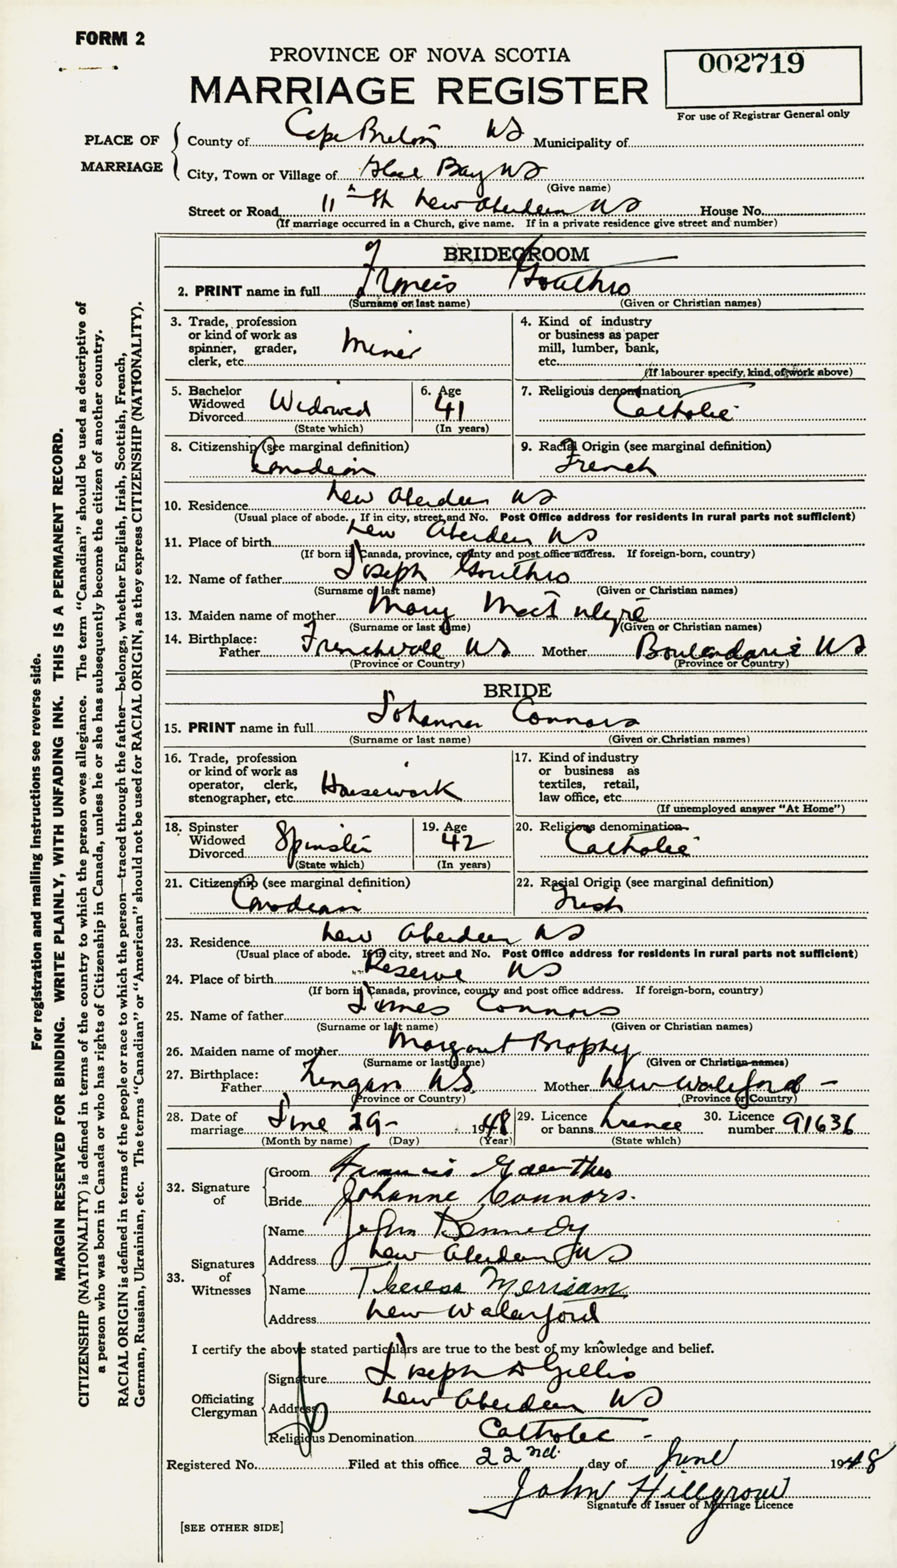 FORM 2
PROVINCE OF NOVA SCOTIA
MARRIAGE REGISTER
002719
For use of Registrar General only
PLACE OF MARRIAGE
County of Cape Breton NS Municipality of
City, Town or Village of Glace Bay NS
(Give name)
Street or Road 11 th New Aberdeen NS House No.
(If marriage occurred in a Church, give name. If in a private residence give street and number)
BRIDEGROOM
2. PRINT name in full Francis Gouthro
(Surname or last name) (Given or Christian names)
3. Trade, profession or kind of work as spinner, grader, clerk, etc. Miner
4. Kind of industry or business as paper mill, lumber, bank, etc.
(If labourer specify, kind of work above)
5. Bachelor Widowed Divorced Widowed
(State which)
6. Age 41
(In years)
7. Religious denomination Catholic
8. Citizenship (see marginal definition) Canadian
9. Racial Origin (see marginal definition) French
10. Residence New Aberdeen NS
(Usual place of abode. If in city, street and No. Post Office address for residents in rural parts not sufficient)
11. Place of birth New Aberdeen NS
(If born in Canada, province, county and post office address. If foreign-born, country)
12. Name of father Joseph Gouthro
(Surname or last name) (Given or Christian names)
13. Maiden name of mother Mary
(Surname or last name) (Given or Christian names)
14. Birthplace: Father Frenchvale NS Mother Boulardarie NS
(Province or Country) (Province or Country)
BRIDE
15. PRINT name in full Johanna Connors
(Surname or last name) (Given or Christian names)
16. Trade, profession or kind of work as operator, clerk, stenographer, etc. Housework
17. Kind of industry or business as textiles, retail, law office, etc.
(If unemployed answer "At Home")
18. Spinster Widowed Divorced Spinster
(State which)
19. Age 42
(In years)
20. Religious denomination Catholic
21. Citizenship (see marginal definition) Canadian
22. Racial Origin (see marginal definition) Irish
23. Residence New Aberdeen NS
(Usual place of abode. If in city, street and No. Post Office address for residents in rural parts not sufficient)
24. Place of birth Reserve NS
(If born in Canada, province, county and post office address. If foreign-born, country)
25. Name of father James Connors
(Surname or last name) (Given or Christian names)
26. Maiden name of mother Margaret Brophy
(Surname or last name) (Given or Christian names)
27. Birthplace: Father Lingan NS Mother New Waterford -
(Province or Country) (Province or Country)
28. Date of marriage June 29 - 1948
(Month by name) (Day) (Year)
29. Licence or banns Licence
(State which)
30. Licence number 91636
32. Signature of
Groom Francis Gouthro
Bride Johanne Connors.
33. Signatures of Witnesses
Name John Kennedy
Address New Aberdeen NS
Name Theresa Merriam
Address New Waterford
I certify the above stated particulars are true to the best of my knowledge and belief.
Officiating Clergyman
Signature Joseph A Gillis
Address New Aberdeen NS
Religious Denomination Catholic -
Registered No. Filed at this office 22nd. day of June 1948
John Hillgrove
Signature of Issuer of Marriage Licence
[SEE OTHER SIDE]
For registration and mailing instructions see reverse side.
MARGIN RESERVED FOR BINDING. WRITE PLAINLY, WITH UNFADING INK. THIS IS A PERMANENT RECORD.
CITIZENSHIP (NATIONALITY) is defined in terms of the country to which the person owes allegiance. The term "Canadian" should be used as descriptive of
a person who was born in Canada or who has rights of Citizenship in Canada, unless he or she has subsequently become the citizen of another country.
RACIAL ORIGIN is defined in terms of the people or race to which the person—traced through the father—belongs, whether English, Irish, Scottish, French,
German, Russian, Ukrainian, etc. The terms "Canadian" or "American" should not be used for RACIAL ORIGIN, as they express CITIZENSHIP (NATIONALITY).